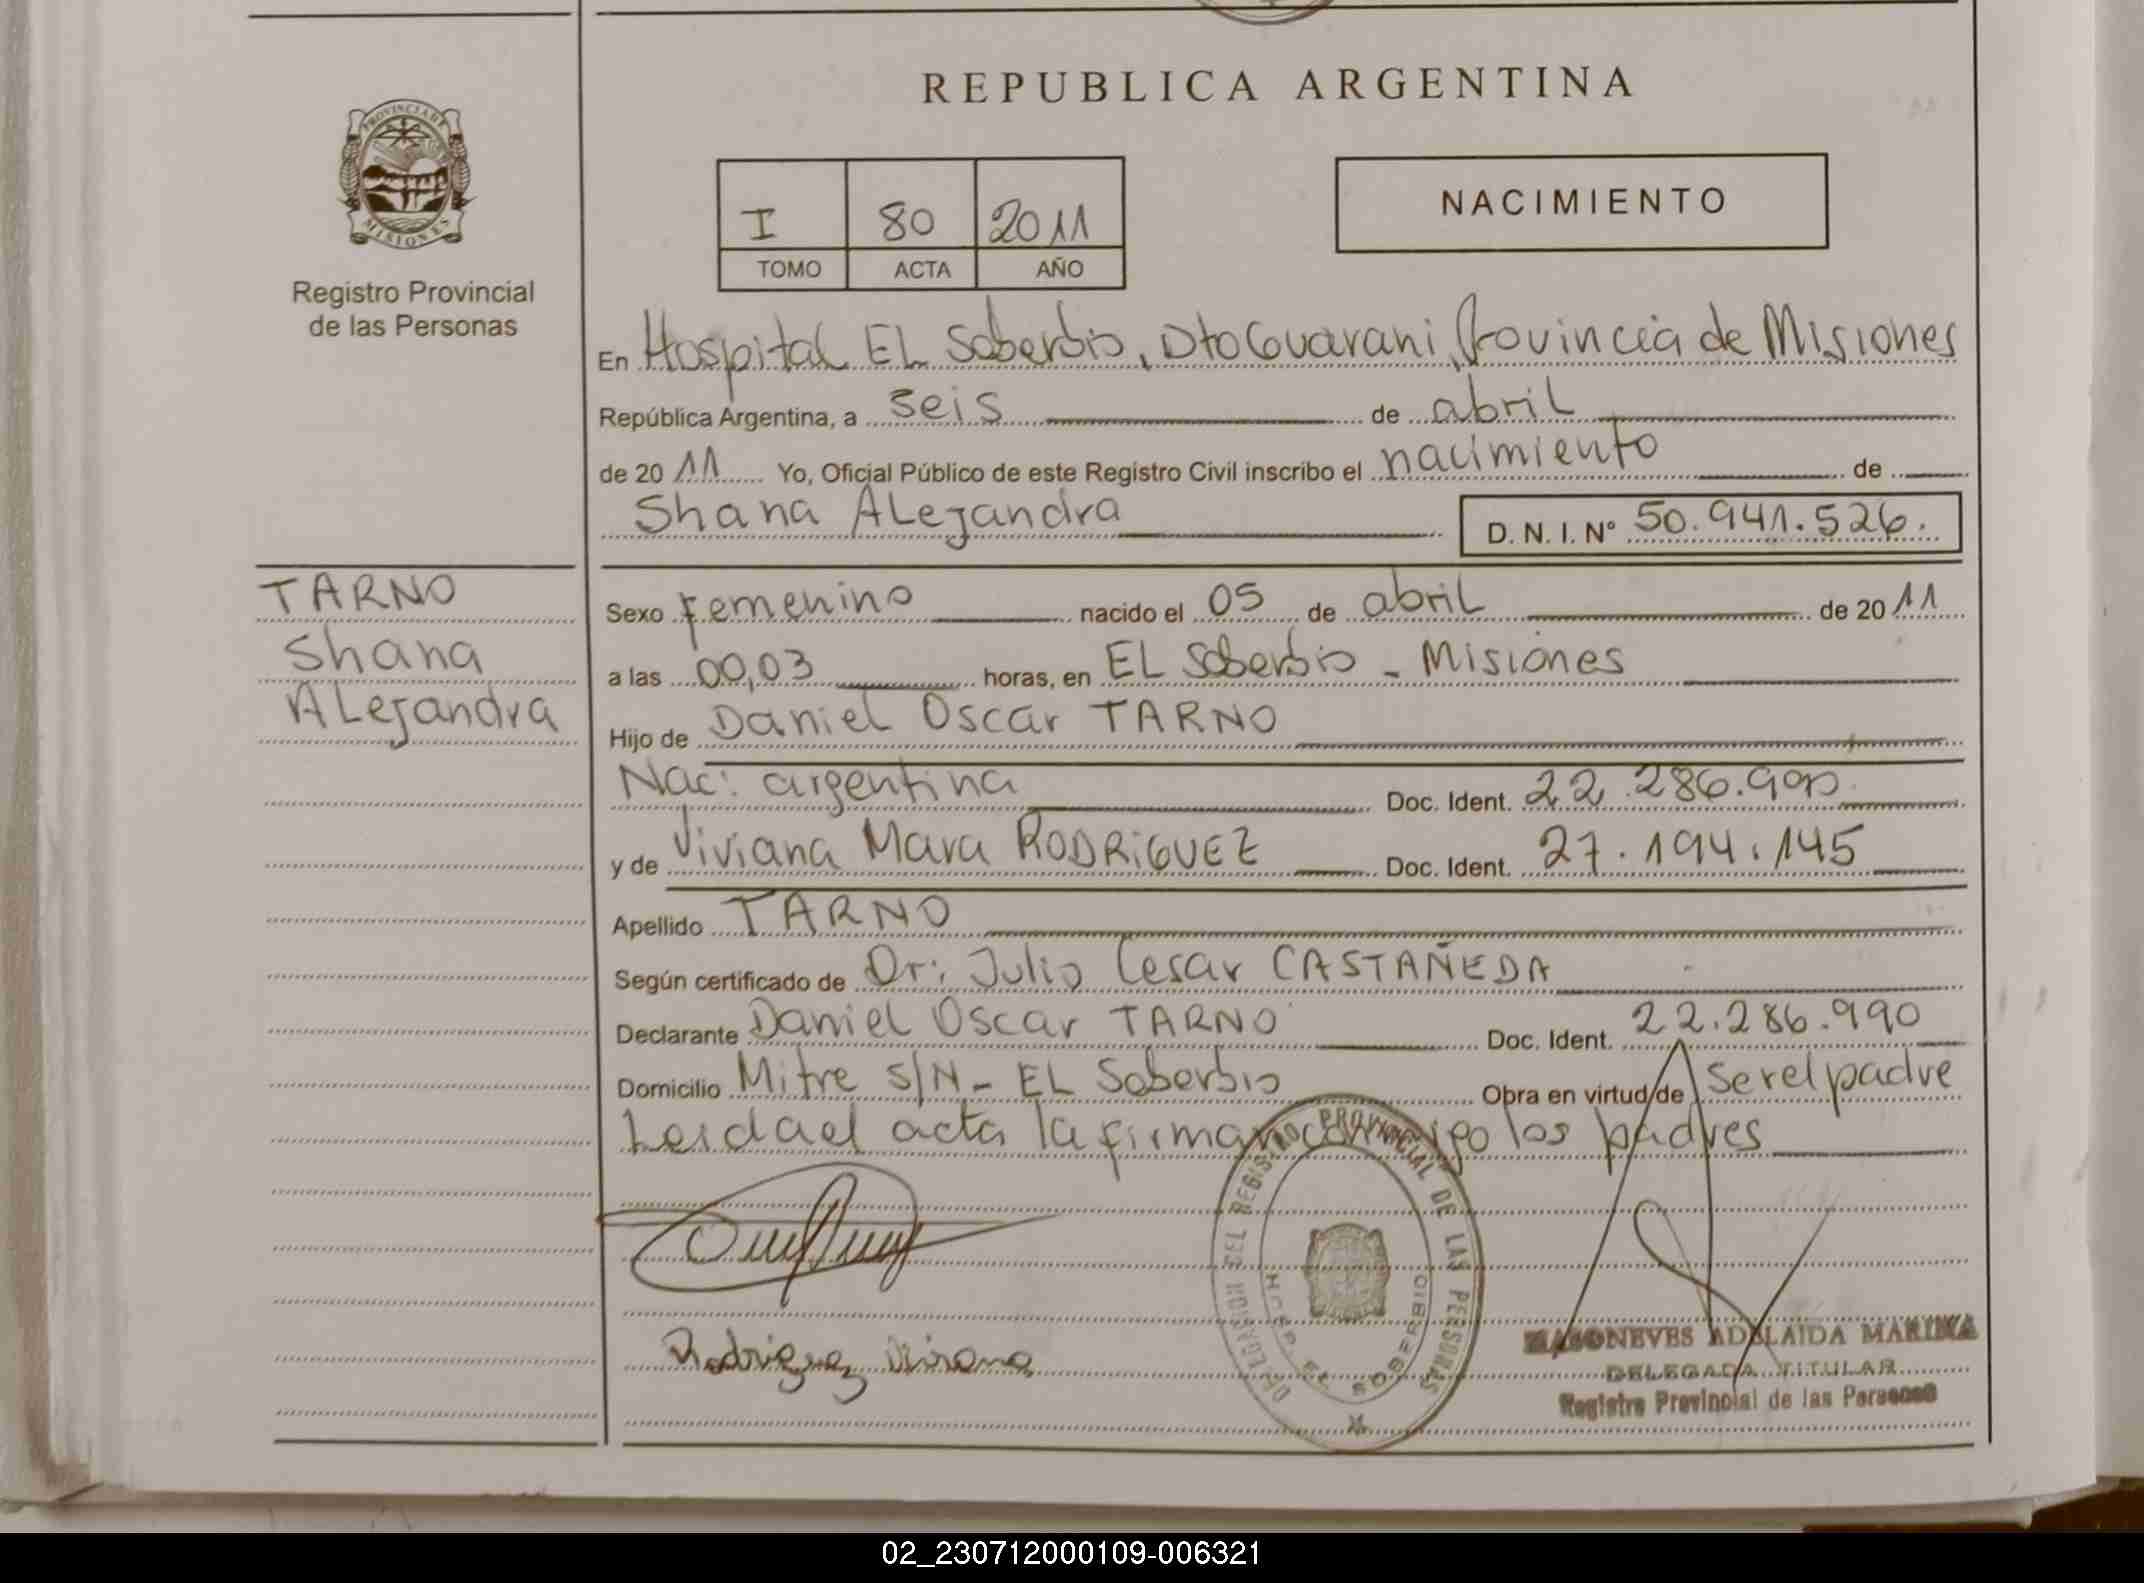 REPUBLICA ARGENTINA
PROVINCIA DE
MISIONES
Registro Provincial
de las Personas
I 80 2011
TOMO ACTA AÑO
NACIMIENTO
En Hospital EL Soberbio, Dto Guarani, Provincia de Misiones
República Argentina, a seis de abril
de 2011 Yo, Oficial Público de este Registro Civil inscribo el nacimiento de
Shana ALejandra D. N. I. Nº 50.941.526.
TARNO
Shana
ALejandra
Sexo Femenino nacido el 05 de abril de 2011
a las 00,03 horas, en EL Soberbio - Misiones
Hijo de Daniel Oscar TARNO
Nac: argentina Doc. Ident. 22.286.990
y de Viviana Mara RODRiGUEZ Doc. Ident. 27.194.145
Apellido TARNO
Según certificado de Dr: Julio Cesar CASTAÑEDA
Declarante Daniel Oscar TARNO Doc. Ident. 22.286.990
Domicilio Mitre S/N - EL Soberbio Obra en virtud de Ser el padre
Leida el acta la firman conmigo los padres
DELEGACION DEL REGISTRO PROVINCIAL DE LAS PERSONAS
HOSP. EL SOBERBIO
Rodriguez Viviana
MASONEVES ADELAIDA MARINA
DELEGADA TITULAR
Registro Provincial de las Personas
02_230712000109-006321